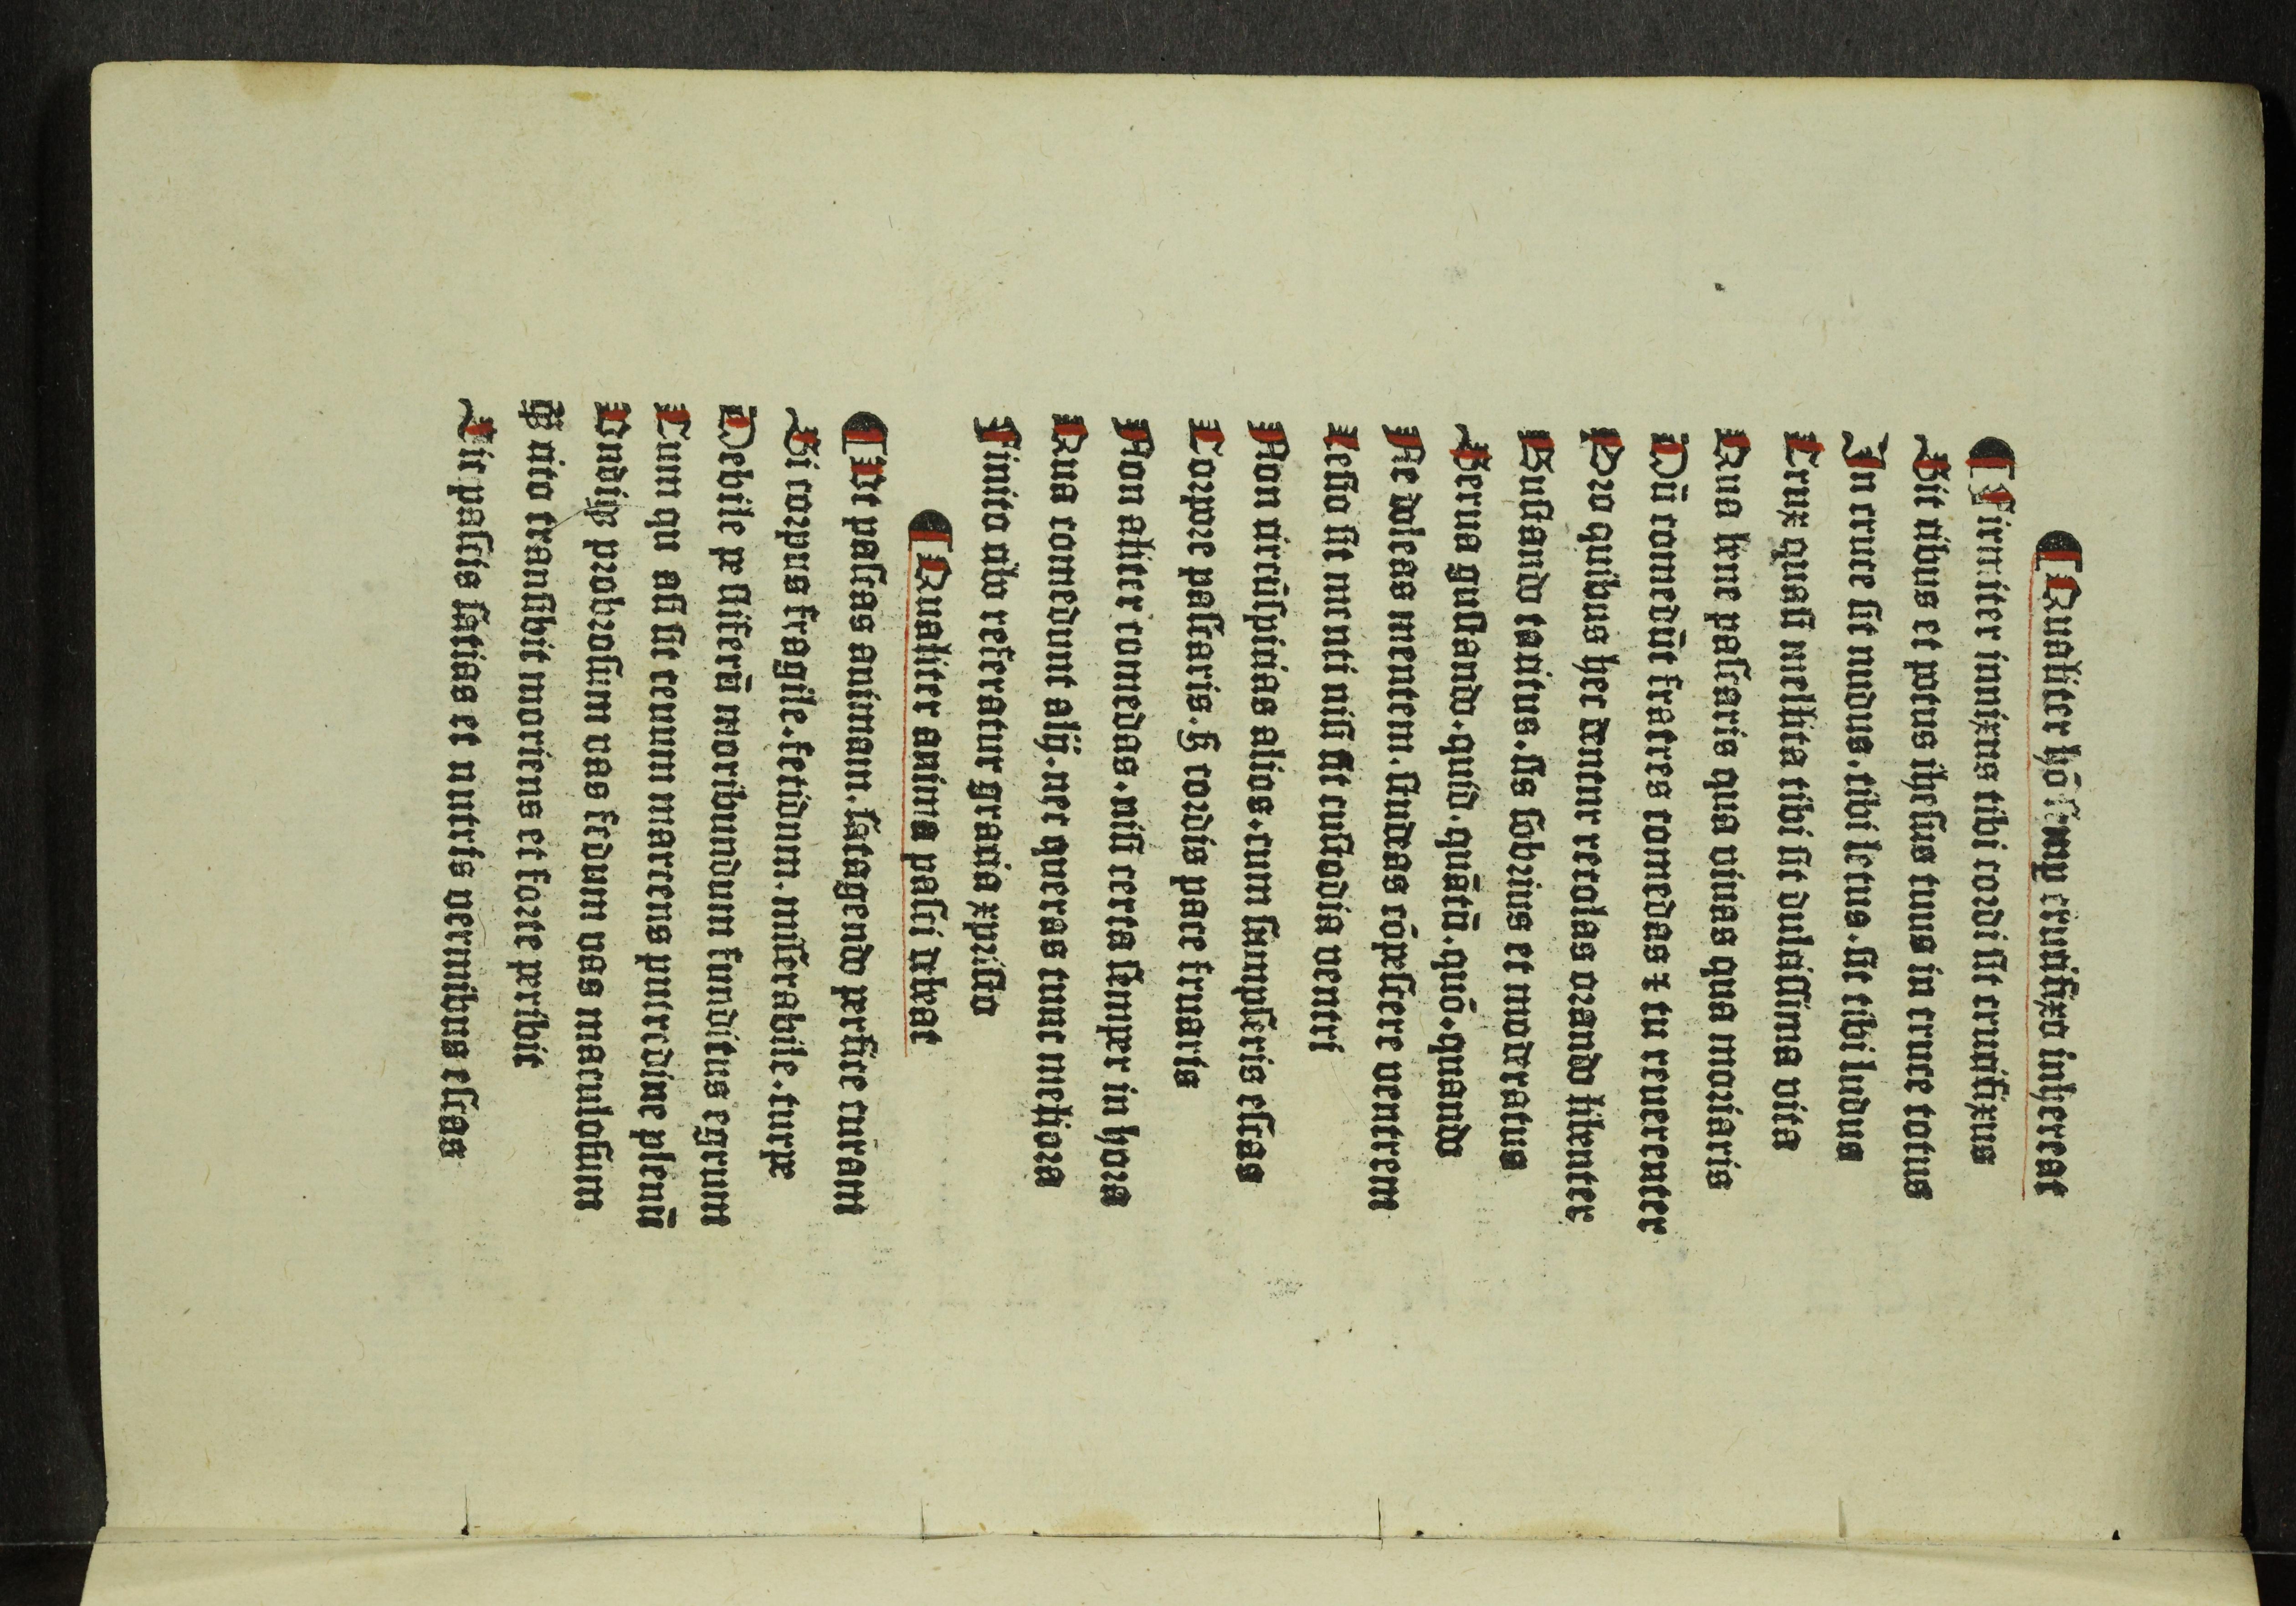 ¶ Qualiter hō semp crucifixo inhereat
¶ Firmiter innixus tibi cordi sit crucifixus
Sit cibus et potus ihesus tuus in cruce totus
In cruce sit nudus. tibi letus. sit tibi ludus
Crux quasi mellita tibi sit dulcissima vita
Qua sine pascaris qua viuas qua moriaris
Dū comedūt fratres comedas ⁊ tu reuerenter
Pro quibus hec dentur recolas orando libenter
Gustando tacitus. sis sobrius et moderatus
Serua gustando. quid. quātū. quō. quando
Ne doleas mentem. studeas cōpescere ventrem
Lectio sit menti nisi sit custodia ventri
Non circūspicias alios. cum sumpseris escas
Corpore pascaris. ꝫ cordis pace fruaris
Non aliter comedas. nisi certa semper in hora
Que comedunt alij. nec queras tunc meliora
Finito cibo referatur gracia xpristo
¶ Qualiter anima pasci debeat
¶ Ut pascas animam. satagendo perfice curam
Si corpus fragile. fetidum. miserabile. turpe
Debile pestiferū moribundum funditus egrum
Cum qu asi sit cenum marcens putredine plenū
Undiqꝫ probrosum vas fedum vas maculosum
Qd̄ cito transibit moriens et forte peribit
Sic pascis sacias et nutris vermibus escas